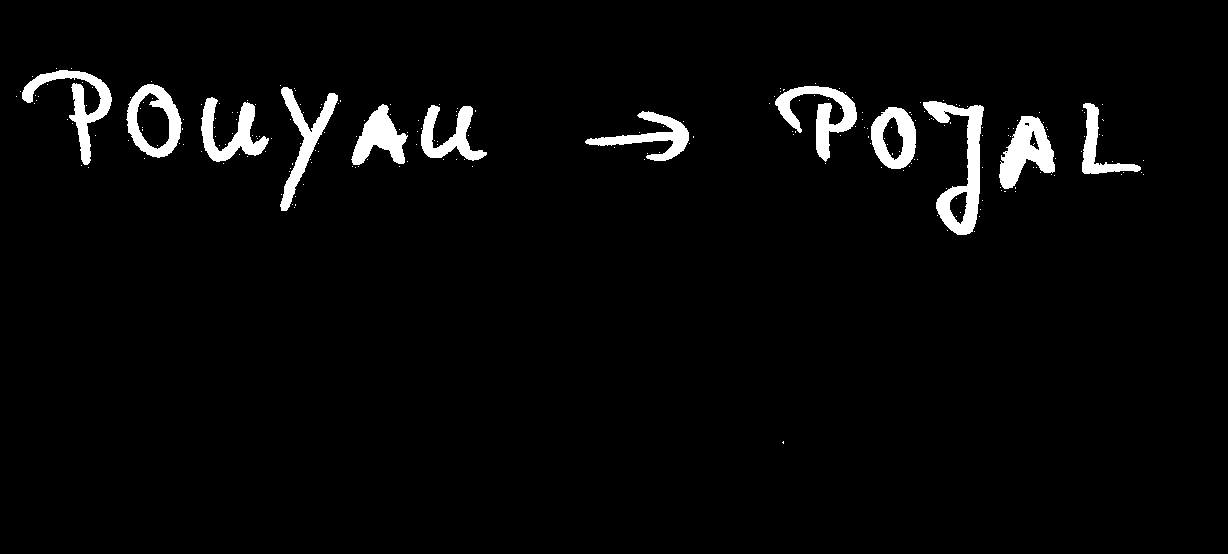 POUYAU → POJAL